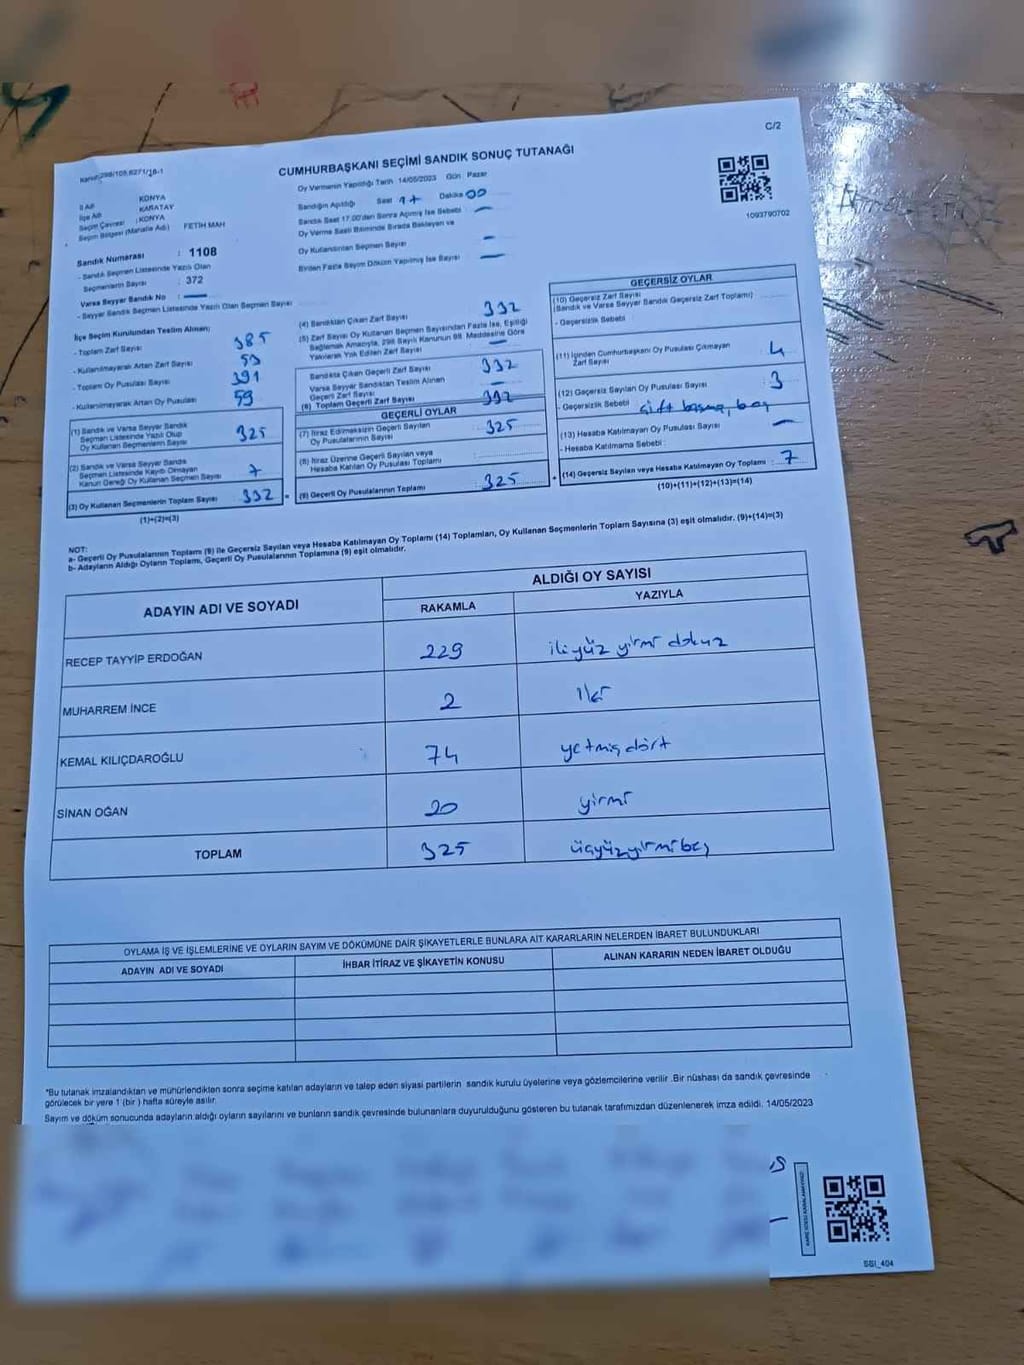 C/2
CUMHURBAŞKANI SEÇİMİ SANDIK SONUÇ TUTANAĞI
Oy Vermenin Yapıldığı Tarih 14/05/2023 Gün Pazar
1093790702
İl Adı : KONYA
İlçe Adı : KARATAY
Seçim Çevresi : KONYA
Seçim Bölgesi (Mahalle Adı) FETİH MAH
Sandık Numarası : 1108
- Sandık Seçmen Listesinde Yazılı Olan
Seçmenlerin Sayısı : 372
Varsa Seyyar Sandık No : —
- Seyyar Sandık Seçmen Listesinde Yazılı Olan Seçmen Sayısı
Sandığın Açıldığı Saat 17 Dakika 00
Sandık Saat 17.00'den Sonra Açılmış İse Sebebi —
Oy Verme Saati Bitiminde Sırada Bekleyen ve
Oy Kullandırılan Seçmen Sayısı —
Birden Fazla Sayım Döküm Yapılmış İse Sayısı —
İlçe Seçim Kurulundan Teslim Alınan;
- Toplam Zarf Sayısı 385
- Kullanılmayarak Artan Zarf Sayısı 53
- Toplam Oy Pusulası Sayısı 391
- Kullanılmayarak Artan Oy Pusulası 59
(1) Sandık ve Varsa Seyyar Sandık
Seçmen Listesinde Yazılı Olup
Oy Kullanan Seçmenlerin Sayısı 325
(2) Sandık ve Varsa Seyyar Sandık
Seçmen Listesinde Kayıtlı Olmayan
Kanun Gereği Oy Kullanan Seçmen Sayısı 7
(3) Oy Kullanan Seçmenlerin Toplam Sayısı 332
(1)+(2)=(3)
(4) Sandıktan Çıkan Zarf Sayısı 332
(5) Zarf Sayısı Oy Kullanan Seçmen Sayısından Fazla İse, Eşitliği
Sağlamak Amacıyla, 298 Sayılı Kanunun 98. Maddesine Göre
Yakılarak Yok Edilen Zarf Sayısı —
Sandıkta Çıkan Geçerli Zarf Sayısı 332
Varsa Seyyar Sandıktan Teslim Alınan
Geçerli Zarf Sayısı —
(6) Toplam Geçerli Zarf Sayısı 332
GEÇERLİ OYLAR
(7) İtiraz Edilmeksizin Geçerli Sayılan
Oy Pusulalarının Sayısı 325
(8) İtiraz Üzerine Geçerli Sayılan veya
Hesaba Katılan Oy Pusulası Toplamı
(9) Geçerli Oy Pusulalarının Toplamı 325
GEÇERSİZ OYLAR
(10) Geçersiz Zarf Sayısı
(Sandık ve Varsa Seyyar Sandık Geçersiz Zarf Toplamı)
- Geçersizlik Sebebi
(11) İçinden Cumhurbaşkanı Oy Pusulası Çıkmayan
Zarf Sayısı 4
(12) Geçersiz Sayılan Oy Pusulası Sayısı 3
- Geçersizlik Sebebi çift basma, boş
(13) Hesaba Katılmayan Oy Pusulası Sayısı —
- Hesaba Katılmama Sebebi :
(14) Geçersiz Sayılan veya Hesaba Katılmayan Oy Toplamı : 7
(10)+(11)+(12)+(13)=(14)
NOT:
a- Geçerli Oy Pusulalarının Toplamı (9) ile Geçersiz Sayılan veya Hesaba Katılmayan Oy Toplamı (14) Toplamları, Oy Kullanan Seçmenlerin Toplam Sayısına (3) eşit olmalıdır. (9)+(14)=(3)
b- Adayların Aldığı Oyların Toplamı, Geçerli Oy Pusulalarının Toplamına (9) eşit olmalıdır.
ADAYIN ADI VE SOYADI ALDIĞI OY SAYISI
RAKAMLA YAZIYLA
RECEP TAYYİP ERDOĞAN 229 ikiyüz yirmi dokuz
MUHARREM İNCE 2 İki
KEMAL KILIÇDAROĞLU 74 yetmiş dört
SİNAN OĞAN 20 yirmi
TOPLAM 325 üçyüzyirmibeş
OYLAMA İŞ VE İŞLEMLERİNE VE OYLARIN SAYIM VE DÖKÜMÜNE DAİR ŞİKAYETLERLE BUNLARA AİT KARARLARIN NELERDEN İBARET BULUNDUKLARI
ADAYIN ADI VE SOYADI İHBAR İTİRAZ VE ŞİKAYETİN KONUSU ALINAN KARARIN NEDEN İBARET OLDUĞU
*Bu tutanak imzalandıktan ve mühürlendikten sonra seçime katılan adayların ve talep eden siyasi partilerin sandık kurulu üyelerine veya gözlemcilerine verilir .Bir nüshası da sandık çevresinde
görülecek bir yere 1 (bir ) hafta süreyle asılır.
Sayım ve döküm sonucunda adayların aldığı oyların sayılarını ve bunların sandık çevresinde bulunanlara duyurulduğunu gösteren bu tutanak tarafımızdan düzenlenerek imza edildi. 14/05/2023
SSI_404